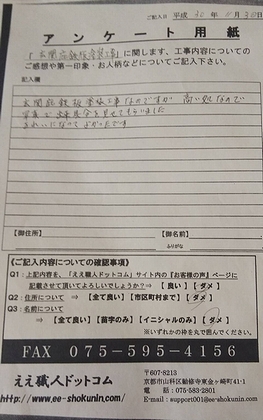 ご記入日 平成 30年 月30日
アンケート用紙
「玄関庇鉄板塗装工事」に関します、工事内容についての
ご感想や第一印象・お人柄などについてご記入下さい。
記入欄
玄関庇鉄板塗装工事なのですが 高い処なので
写真で 部分を見せてもらいました
きれいになってよかったです
【御住所】 【御名前】
ふりがな
《ご記入内容についての確認事項》
Q1:上記内容を、「ええ職人ドットコム」サイト内の『お客様の声』ページに
記載させて頂いてよろしいでしょうか? ⇒ 【良い】【ダメ】
Q2:住所について ⇒ 【全て良い】【市区町村まで】【ダメ】
Q3:名前について
⇒ 【全て良い】【苗字のみ】【イニシャルのみ】【ダメ】
※いずれかの枠を丸で囲んでください。
FAX 075-595-4156
ええ職人ドットコム
http://www.ee-shokunin.com/
〒607-8213
京都市山科区勧修寺東金ヶ崎町41-1
電話:075-583-2801
E-mail:support001@ee-shokunin.com